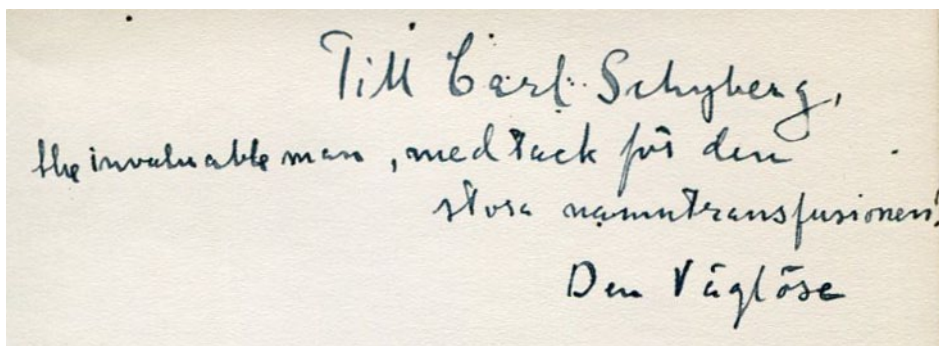 Till Carl Schyberg,
the invaluable man, med tack för den
stora namntransfusionen!
Den Väglöse